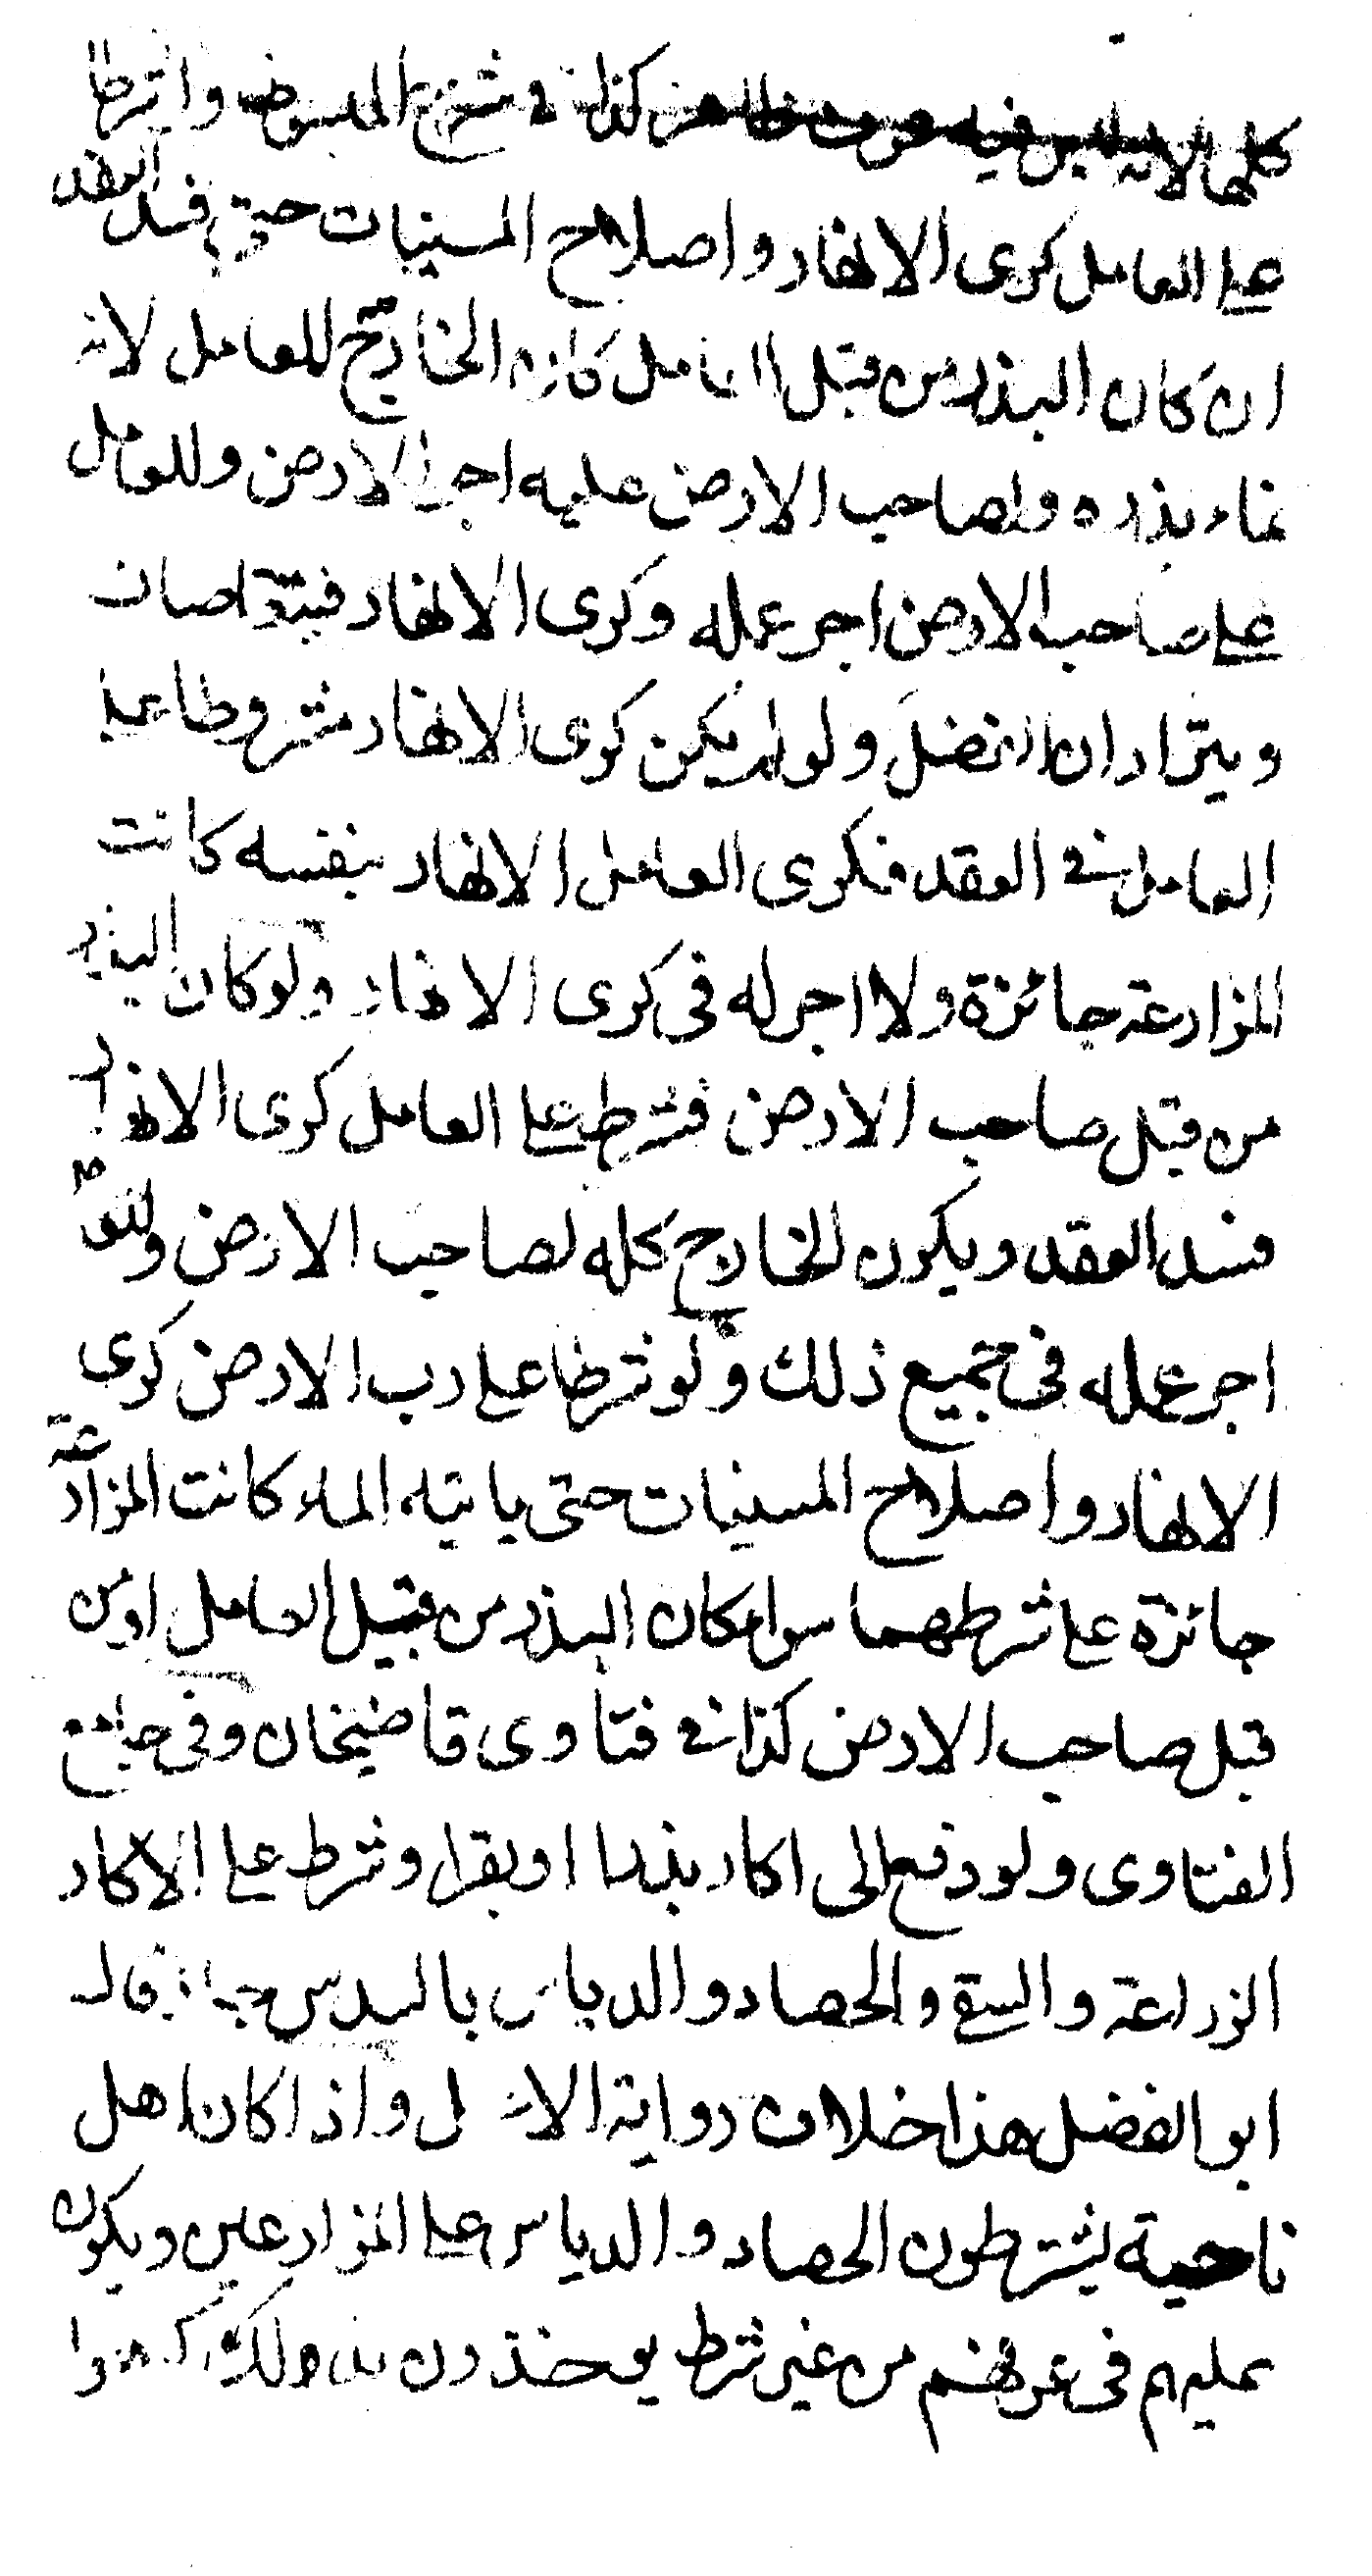 كلها لانه ليس فيه عرف ظاهر كذا في شرح المبسوط واشرطا
على العامل كرى الانهار واصلاح المسنيات حتى فسد العقد
ان كان البذر من قبل العامل كان الخارج للعامل لانه
نماء بذره ولصاحب الارض عليه اجر الارض وللعامل
على صاحب الارض اجر عمله وكرى الانهار فيتقاصان
ويترادان الفضل ولو لم يكن كرى الانهار مشروطا على
العامل في العقد فكرى العامل الانهار بنفسه كانت
المزارعة جائزة ولا اجر له في كرى الانهار ولو كان البذر
من قبل صاحب الارض فشرط على العامل كرى الانهار
فسد العقد ويكون الخارج كله لصاحب الارض
اجر عمله في جميع ذلك ولو شرطا على رب الارض كرى
الانهار واصلاح المسنيات حتى ياتيه الماء كانت المزارعة
جائزة على شرطهما سواء كان البذر من قبل العامل او من
قبل صاحب الارض كذا في فتاوى قاضيخان وفي جامع
الفتاوى ولو دفع الى اكار بذرا او بقرا وشرط على الاكار
الزراعة والسقى والحصاد والدياس بالسدس جاز قال
ابو الفضل هذا خلاف رواية الاصل واذا كان اهل
ناحية يشترطون الحصاد والدياس على المزارعين ويكون
عليهم في عرفهم من غير شرط يوخذون بذلك